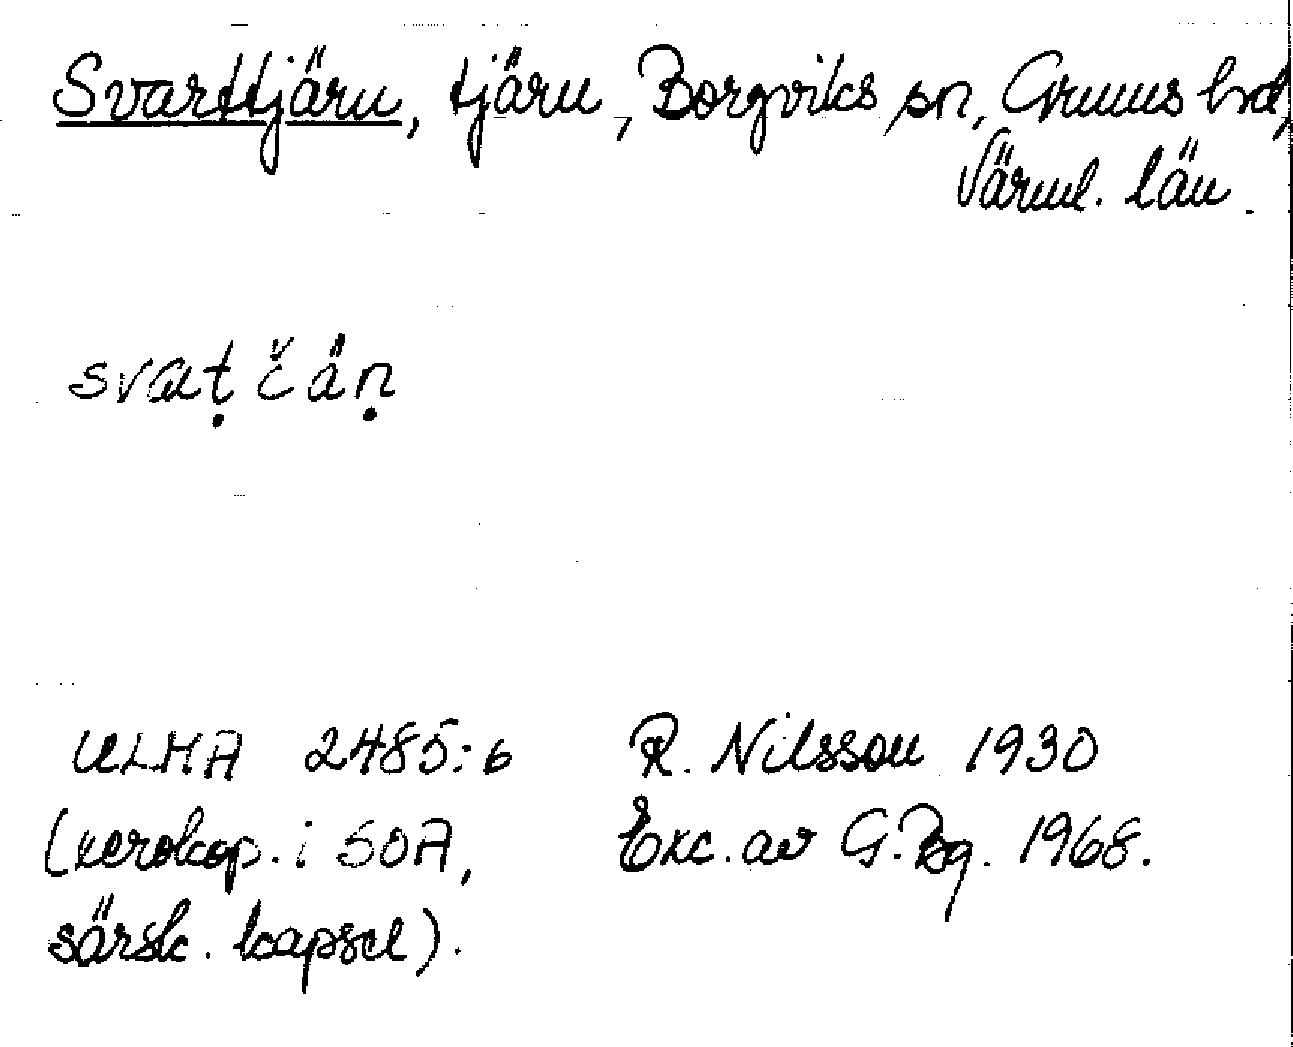 Svarttjärn, tjärn, Borgviks sn, Grums hd,
Värml. län.
svaṭčäṇ
ULMA 2485:6 R. Nilsson 1930
(xerokop. i SOA, Exc. av G. Bg. 1968.
särsk. kapsel).